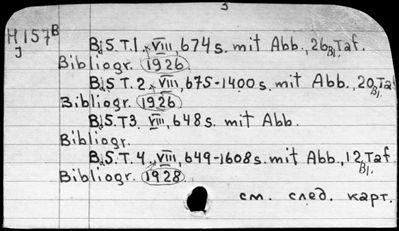 3
H 157 B
J
Bd5.T.1. VIII, 674 s. mit Abb., 26 Bl. Taf.
Bibliogr. 1926
Bd5.T.2. VIII, 675-1400 s. mit Abb., 20 Bl. Taf.
Bibliogr. 1926
Bd5.T3. VIII, 648 s. mit Abb.
Bibliogr.
Bd5.T.4. VIII, 649-1608 s. mit Abb., 12 Bl. Taf.
Bibliogr. 1928
см. след. карт.